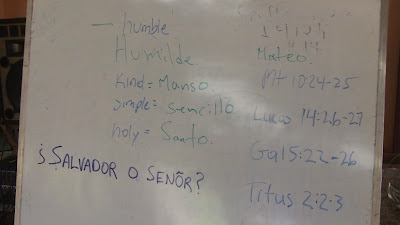 — humble
Humilde
Kind = Manso.
simple = sencillo
holy = Santo.
¿SALVADOR O SENÕR?
Mateo
Mt 10:24-25
Lucas 14:26-27
Gal 5:22-26
Titus 2:2-3